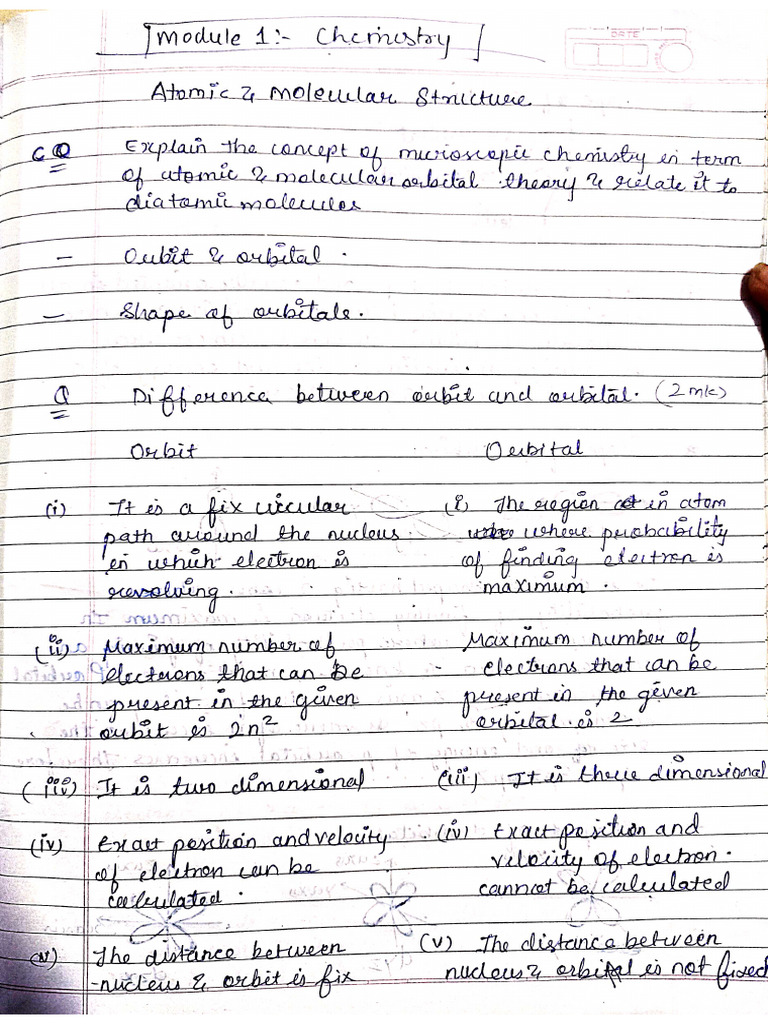 Module 1:- Chemistry
DATE
Atomic & Molecular Structure
CO Explain the concept of microscopic chemistry in term
of atomic & molecular orbital theory & relate it to
diatomic molecules
- Orbit & orbital.
- Shape of orbitals.
Q Difference between orbit and orbital. (2 mk)
Orbit Orbital
(i) It is a fix circular (i) The region in atom
path around the nucleus where probability
in which electron is of finding electron is
revolving. maximum.
(ii) Maximum number of Maximum number of
electrons that can be - electrons that can be
present in the given present in the given
orbit is 2n² orbital is 2
(iii) It is two dimensional (iii) It is three dimensional
(iv) Exact position and velocity (iv) Exact position and
of electron can be velocity of electron.
calculated. cannot be calculated
(v) The distance between (v) The distance between
-nucleus & orbit is fix nucleus & orbital is not fixed